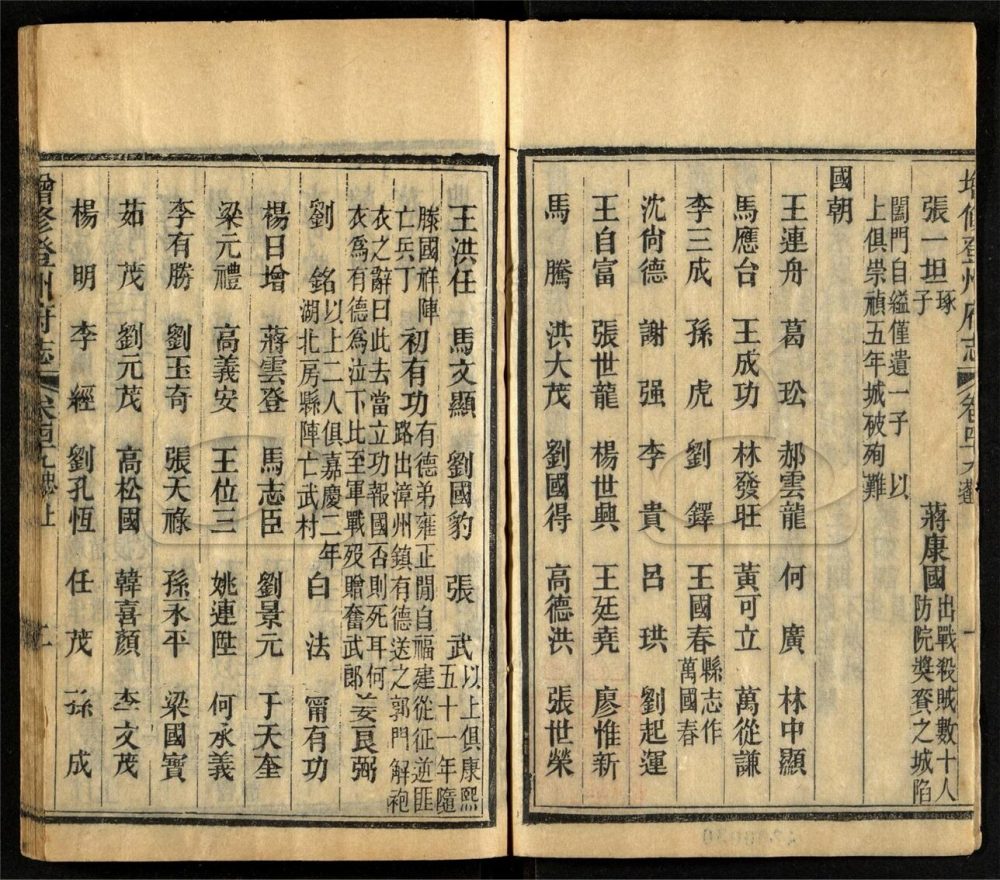 增修登州府志 卷四十九
張一坦 琢子 蔣康國 出戰殺賊數十人防院獎賚之城陷
闔門自縊僅遺一子 以上俱崇禎五年城破殉難
國朝
王連舟 葛玜 郝雲龍 何廣 林中顯
馬應台 王成功 林發旺 黃可立 萬從謙
李三成 孫虎 劉鐸 王國春 縣志作萬國春
沈尙德 謝强 李貴 呂珙 劉起運
王自富 張世龍 楊世興 王廷堯 廖惟新
馬騰 洪大茂 劉國得 高德洪 張世榮
王洪任 馬文顯 劉國豹 張武 以上俱康熙五十一年隨
滕國祥陣亡兵丁 初有功 有德弟雍正閒自福建從征逆匪路出漳州鎮有德送之郭門解袍
衣之辭曰此去當立功報國否則死耳何衣爲有德爲泣下比至軍戰歿贈奮武郎 姜良弼
劉銘 以上二人俱嘉慶二年湖北房縣陣亡武村 白法 甯有功
楊日增 蔣雲登 馬志臣 劉景元 于天奎
梁元禮 高義安 王位三 姚連陞 何承義
李有勝 劉玉奇 張天祿 孫永平 梁國寶
茹茂 劉元茂 高松國 韓喜顏 李文茂
楊明 李經 劉孔恆 任茂 孫成
增修登州府志 卷四十九 忠上 二